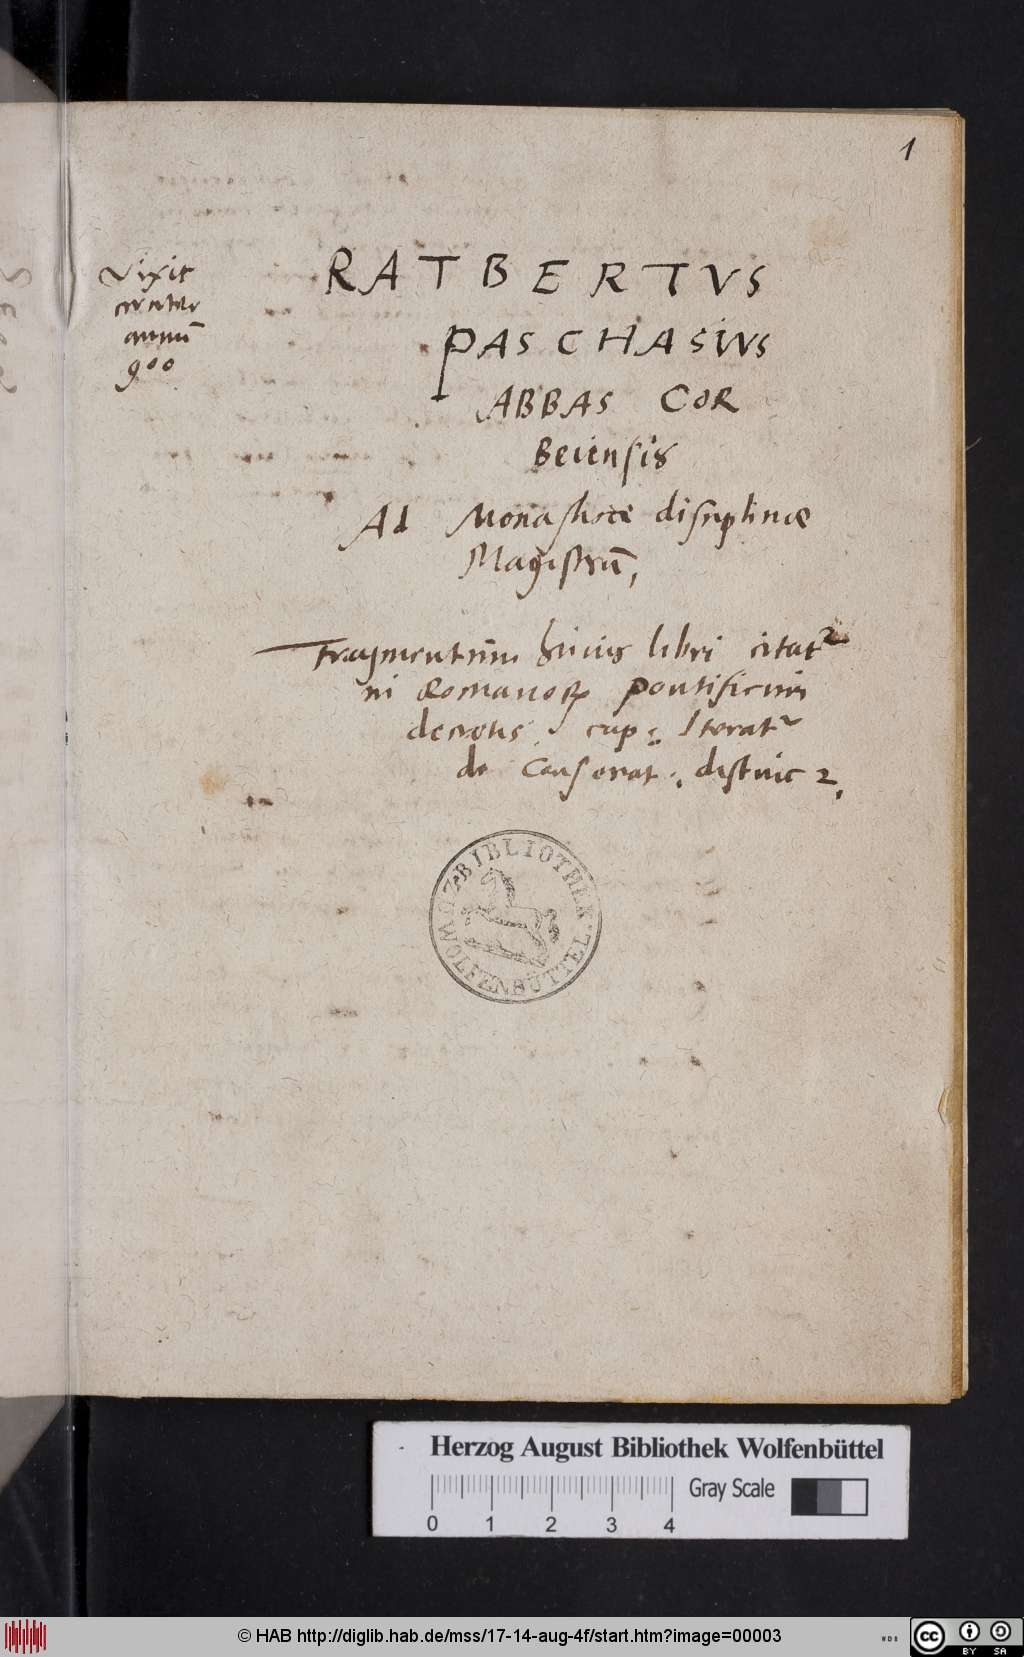 1
Vixit
circiter
annū
900
RATBERTVS
PASCHASIVS
ABBAS COR
Beiensis
Ad Monasticæ disciplinæ
Magistrū,
Fragmentum huius libri citatr
in Romanorꝝ pontificum
decretis. cap: Iteratr
de Consecrat. distinc 2,
HZ. BIBLIOTHEK.
WOLFENBÜTTEL.
Herzog August Bibliothek Wolfenbüttel
Gray Scale
0 1 2 3 4
© HAB http://diglib.hab.de/mss/17-14-aug-4f/start.htm?image=00003
WDB
cc BY SA